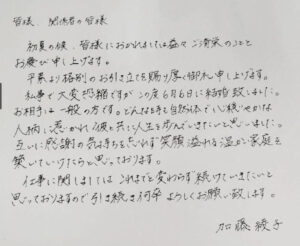 ファンの皆様　関係者の皆様
初夏の候、皆様におかれましては益々ご清栄のことと
お慶び申し上げます。
平素より格別のお引き立てを賜り厚く御礼申し上げます。
私事で大変恐縮ですがこの度6月6日に結婚致しました。
お相手は一般の方です。どんな時も自然体で心穏やかな
人柄に惹かれ彼と共に人生を歩んでいきたいと思いました。
互いに感謝の気持ちを忘れず笑顔溢れる温かい家庭を
築いていけたらと思っております。
仕事に関しましてはこれまでと変わらず続けていきたいと
思っておりますので引き続き何卒よろしくお願い致します。
加藤綾子